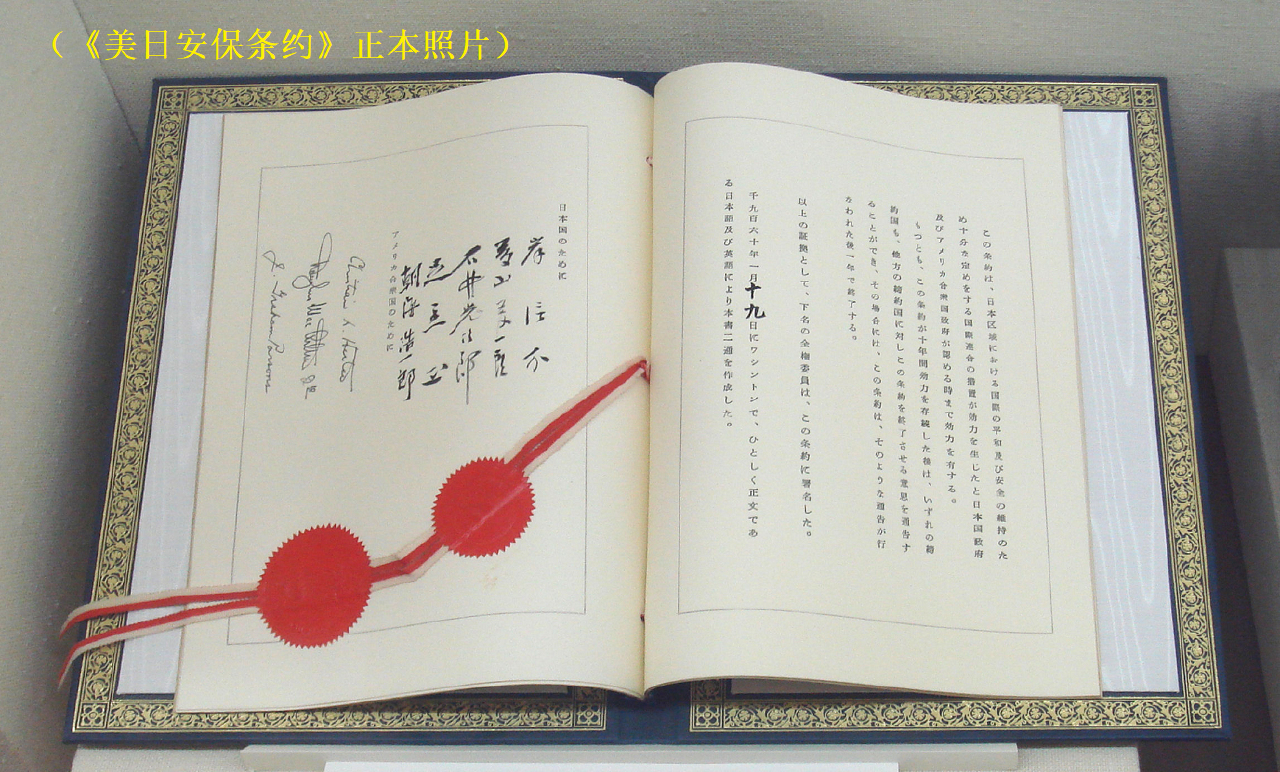 （《美日安保条约》正本照片）
この条約は、日本区域における国際の平和及び安全の維持のた
め十分な定めをする国際連合の措置が効力を生じたと日本国政府
及びアメリカ合衆国政府が認める時まで効力を有する。
もつとも、この条約が十年間効力を存続した後は、いずれの締
約国も、他方の締約国に対しこの条約を終了させる意思を通告す
ることができ、その場合には、この条約は、そのような通告が行
なわれた後一年で終了する。
以上の証拠として、下名の全権委員は、この条約に署名した。
千九百六十年一月十九日にワシントンで、ひとしく正文であ
る日本語及び英語により本書二通を作成した。
日本国のために
岸信介
藤山愛一郎
石井光次郎
足立正
朝海浩一郎
アメリカ合衆国のために
Christian A. Herter
Douglas MacArthur 2nd
J. Graham Parsons